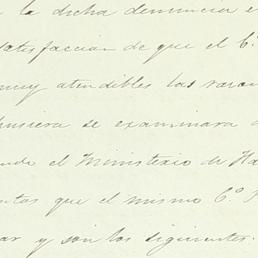 la dicha denuncia e
satisfaccion de que el C.º
muy atendibles las razon
pusiera se examinara
el Ministerio de Ha
que el mismo C.º
ar y son los siguientes.